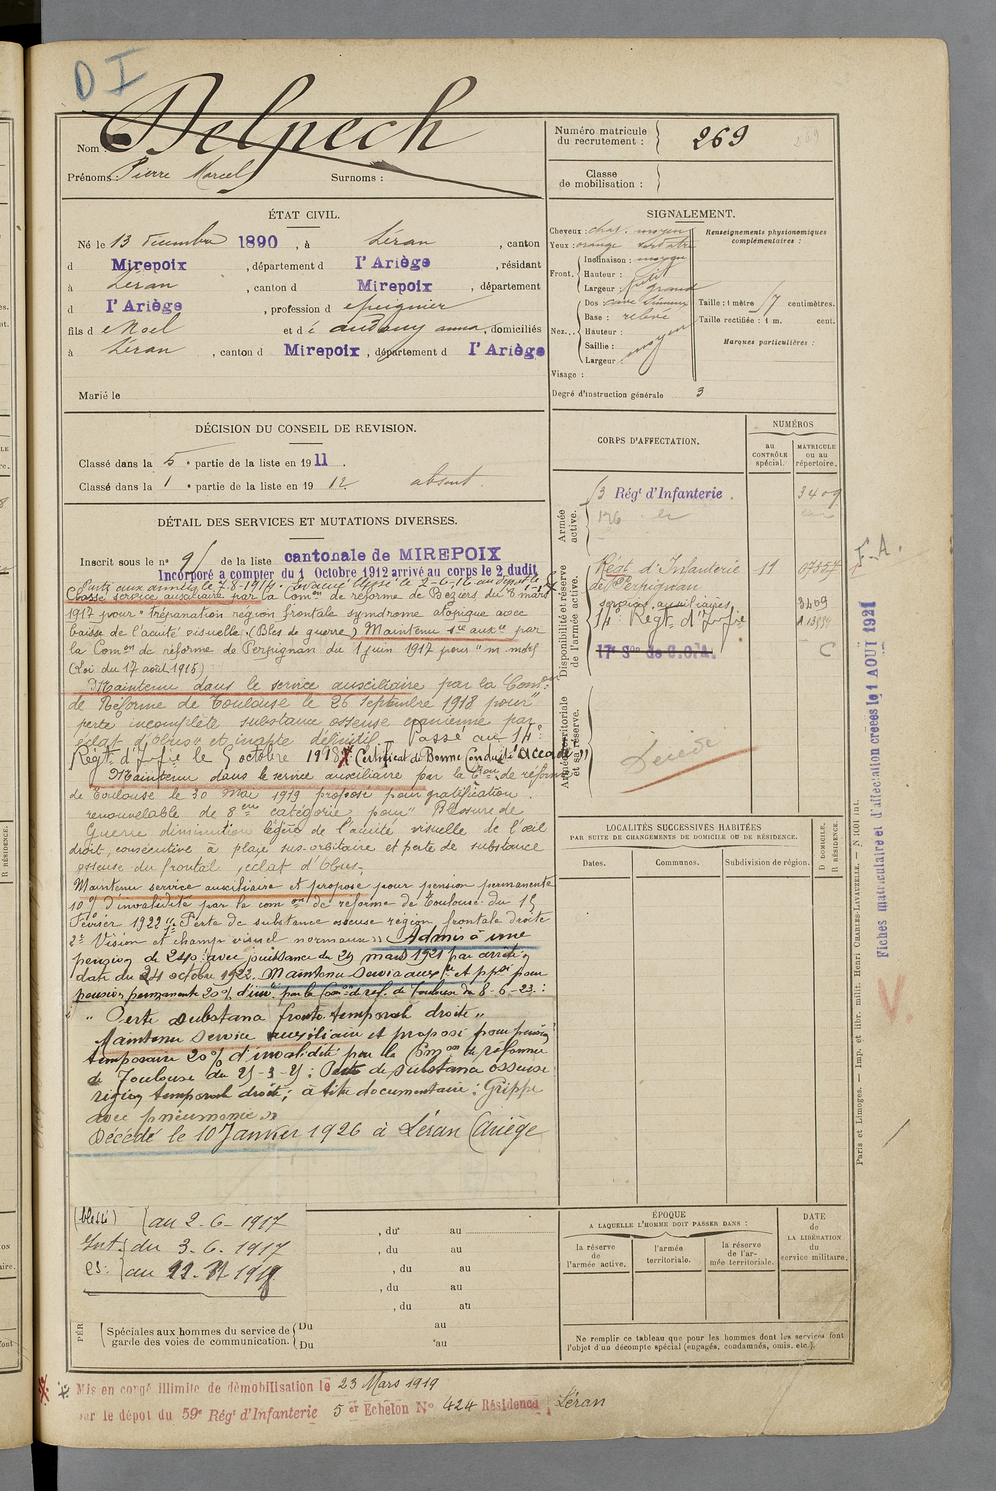 D I
Nom : Delpech
Prénoms : Pierre Marcel Surnoms :
Numéro matricule du recrutement : 269
Classe de mobilisation :
ÉTAT CIVIL.
Né le 13 décembre 1890, à Léran, canton
d Mirepoix, département d l'Ariège, résidant
à Léran, canton d Mirepoix, département
d l'Ariège, profession d epicier
fils d e Noel et d e anna, domiciliés
à Léran, canton d Mirepoix, département d l'Ariège
Marié le
SIGNALEMENT.
Cheveux : chat. moyen
Yeux : orange
Front. Inclinaison : moyen
Hauteur : petit
Largeur : grand
Nez... Dos
Base : relevé
Hauteur :
Saillie : moyen
Largeur :
Visage :
Renseignements physionomiques complémentaires :
Taille : 1 mètre 57 centimètres.
Taille rectifiée : 1 m. cent.
Marques particulières :
Degré d'instruction générale 3
DÉCISION DU CONSEIL DE REVISION.
Classé dans la 5e partie de la liste en 1911.
Classé dans la 1e partie de la liste en 1912. absent.
DÉTAIL DES SERVICES ET MUTATIONS DIVERSES.
Inscrit sous le n° 95 de la liste cantonale de MIREPOIX
Incorporé a compter du 1 Octobre 1912 arrivé au corps le 2 dudit
Parti aux armées le 7-8-1914. Evacué blessé le 2-6-16 au dépôt le
Classé service auxiliaire par la Comon de réforme de Beziers du 8 mars
1917 pour "trépanation région frontale syndrome atopique avec
baisse de l'acuité visuelle. (Bles de guerre) Maintenu sce auxre par
la Comon de réforme de Perpignan du 1 juin 1917 pour "m. mdif
(Loi du 17 août 1915)
Maintenu dans le service auxiliaire par la Comon
de Réforme de Toulouse le 26 Septembre 1918 pour
perte incomplète substance osseuse cranienne par
éclat d'obus" et inapte définitif. Passé au 14e
Régt. d'Infie le 5 octobre 1918 Certificat de Bonne Conduite "Accordé"
Maintenu dans le service auxiliaire par la Con de réforme
de Toulouse le 30 Mai 1919 proposé pour gratification
renouvelable de 8eme catégorie pour "Blessure de
Guerre diminution légère de l'acuité visuelle de l'œil
droit, consécutive à plaie sus-orbitaire et perte de substance
osseuse du frontal, éclat d'Obus.
Maintenu service auxiliaire et proposé pour pension permanente
10% d'invalidité par la comon de réforme de Toulouse du 15
Février 1922 "1° Perte de substance osseuse région frontale droite
2° Vision et champ visuel normaux" Admis à une
pension de 240f avec jouissance du 29 mars 1921 par arrêté
date du 24 octobre 1922. Maintenu Service auxre et ppsé pour
pension permanente 20% d'inv. par la Comon de réf. de Toulouse du 8-6-23 :
" Perte Substance fronto-temporale droite "
Maintenu Service auxiliaire et proposé pour pension
temporaire 20% d'invalidité par la Comon de réforme
de Toulouse du 25-3-25 : Perte de substance osseuse
région temporale droite ; à titre documentaire : Grippe
avec pneumonie "
Décédé le 10 Janvier 1926 à Léran (Ariège
CORPS D'AFFECTATION.
NUMÉROS
au CONTRÔLE spécial.
MATRICULE ou au répertoire.
Armée active.
Régt d'Infanterie. 3409
126
Disponibilité et réserve de l'armée active.
Régt d'Infanterie 11
de Perpignan
services auxiliaires 3409
14e Régt. d'Infie
17e Son de C.O.A. C
Armée territoriale et sa réserve.
Décédé
F.A.
Fiches matriculaire et d'affectation créées le 1 AOUT 1921
V.
LOCALITÉS SUCCESSIVES HABITÉES
PAR SUITE DE CHANGEMENTS DE DOMICILE OU DE RÉSIDENCE.
Dates. Communes. Subdivision de région. D DOMICILE. R RÉSIDENCE.
Paris et Limoges. — Imp. et libr. milit. Henri CHARLES-LAVAUZELLE.
(blessé) au 2-6-1917
Int. du 3.6.1917
, du au
, du au
, du au
, du au
, du au
Spéciales aux hommes du service de garde des voies de communication. Du au
Du au
ÉPOQUE
A LAQUELLE L'HOMME DOIT PASSER DANS :
la réserve de l'armée active.
l'armée territoriale.
la réserve de l'armée territoriale.
DATE de LA LIBÉRATION du service militaire.
Ne remplir ce tableau que pour les hommes dont les services font l'objet d'un décompte spécial (engagés, condamnés, omis, etc.).
Mis en congé illimité de démobilisation le 23 Mars 1919
par le dépôt du 59e Régt d'Infanterie 5er Echelon No 424 Résidence Léran